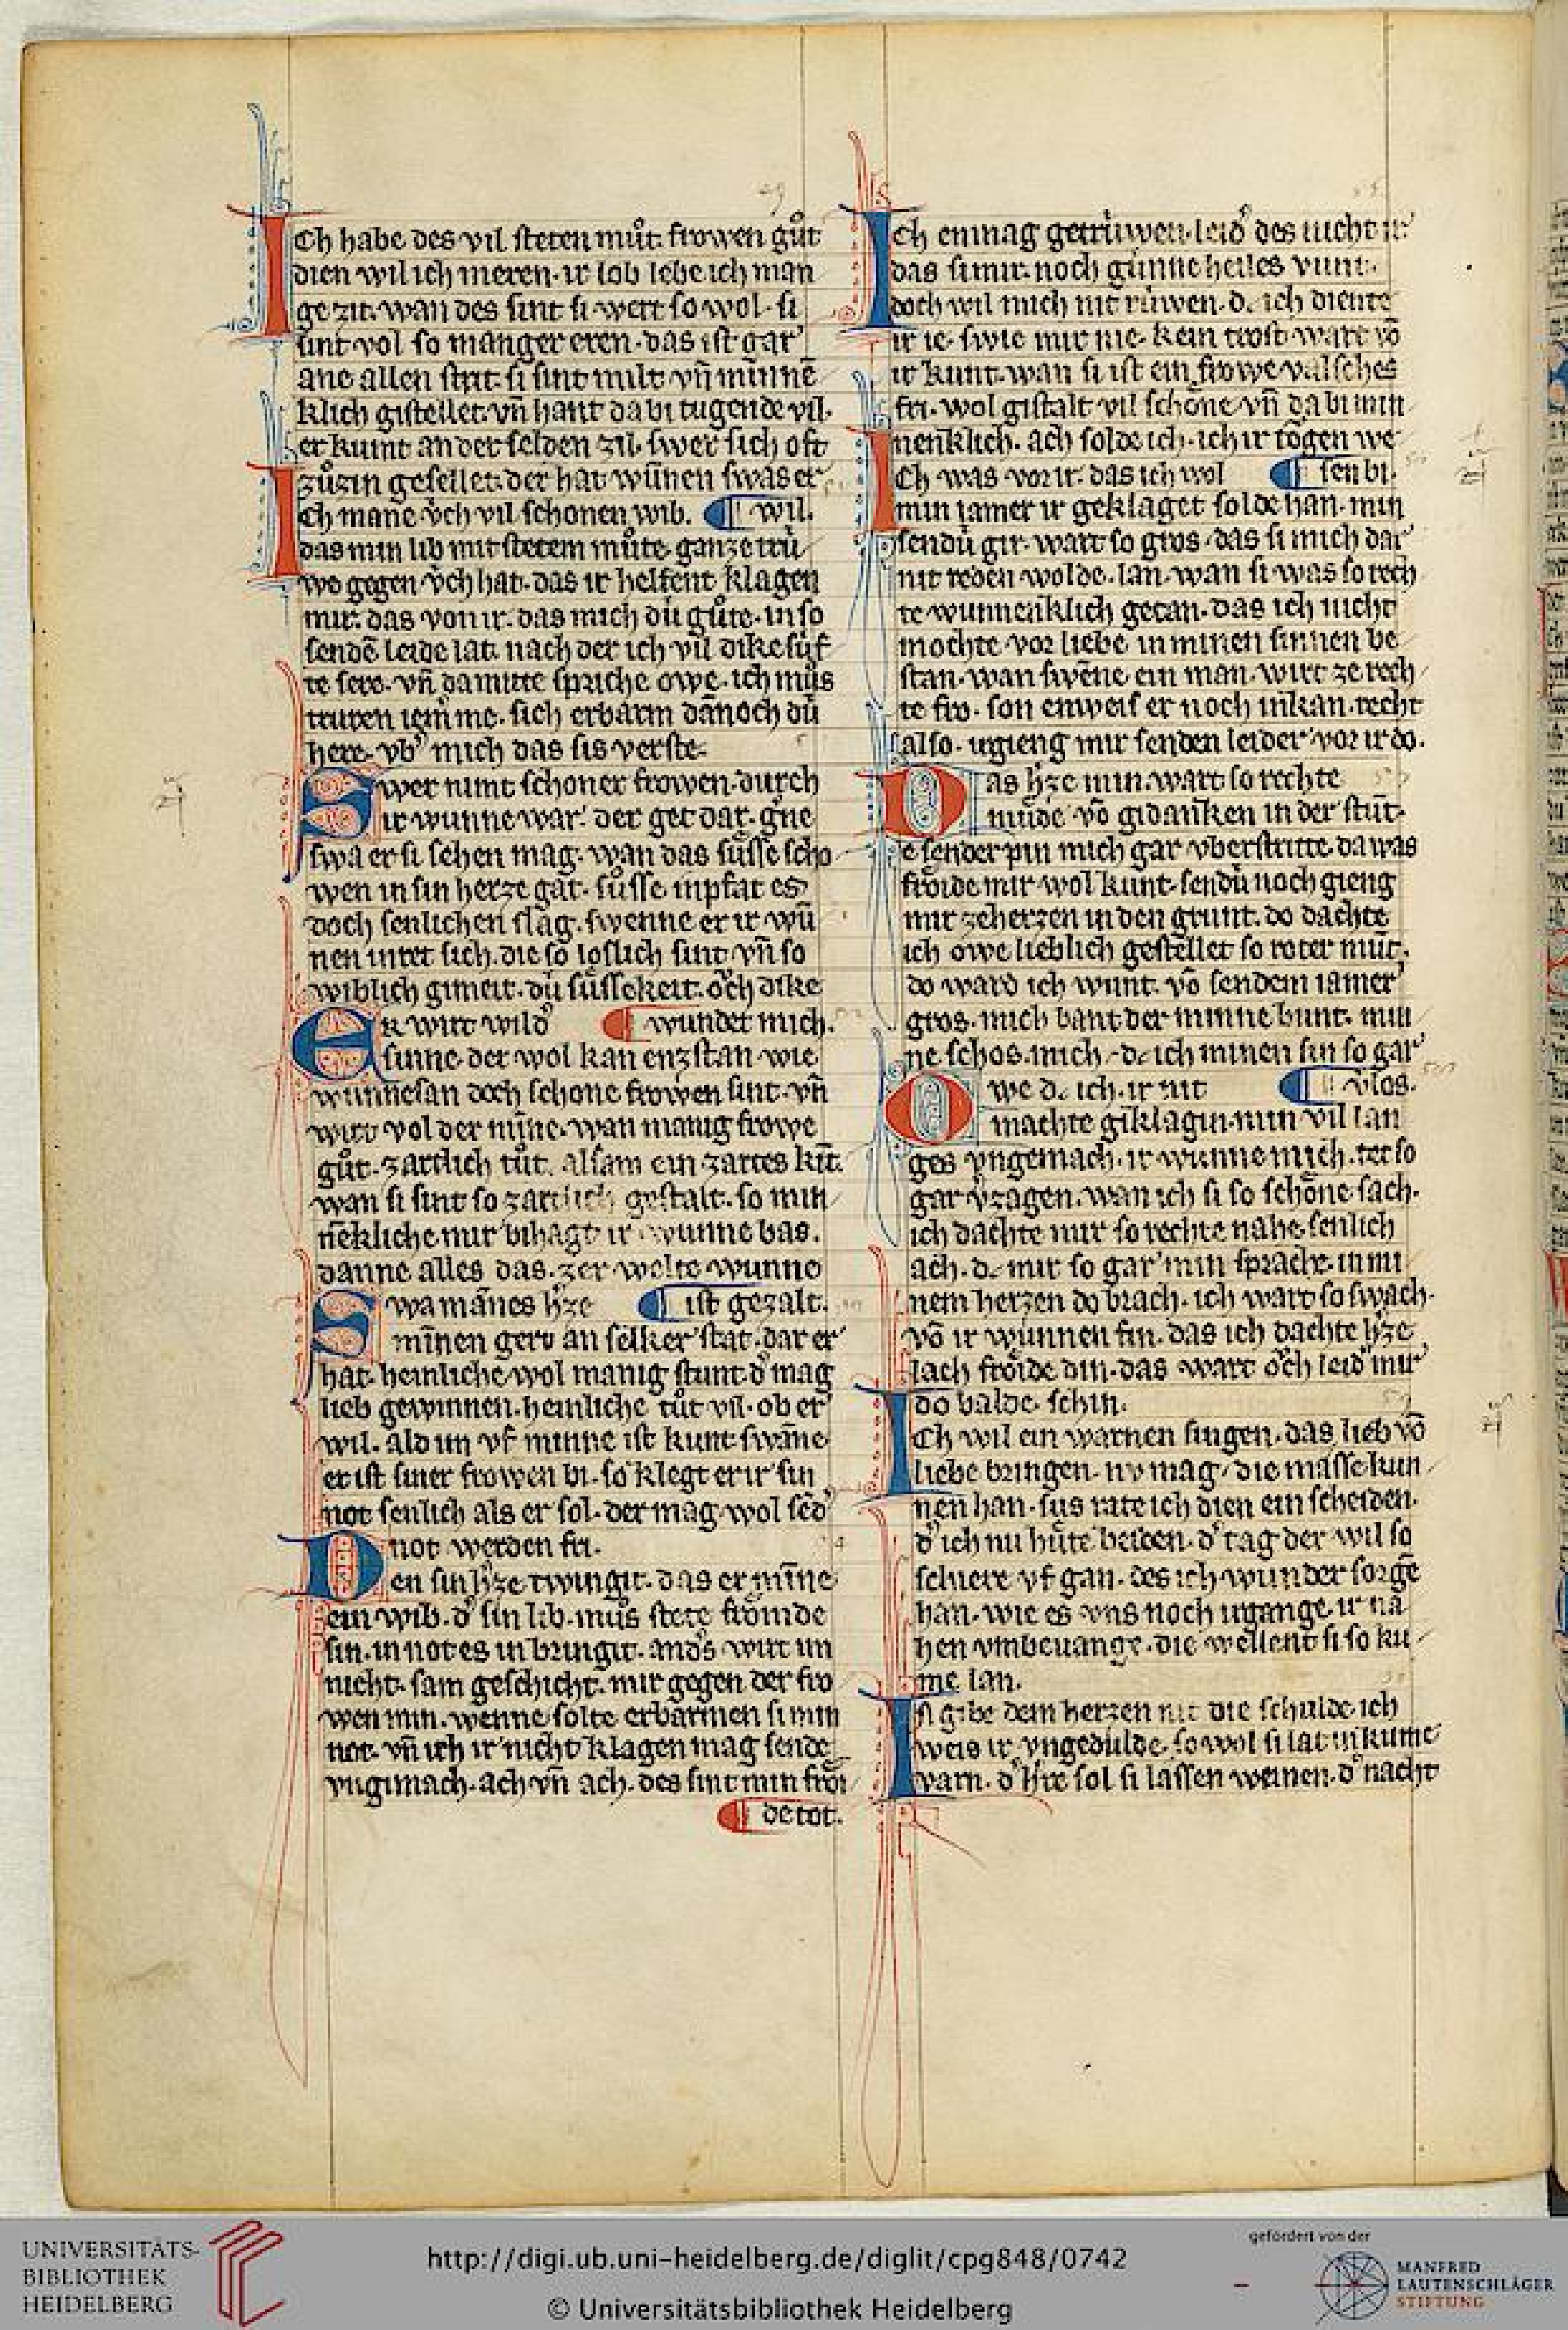 Ich habe des vil steten muͦt. frowen guͦt
dien wil ich meren. ir lob lebe ich man
ge zit. wan des sint si wert so wol. si
sint vol so manger eren. das ist gar
ane allen strit. si sint milt vn̄ minne
klich gistellet. vn̄ hant da bi tugende vil.
er kumt an der selden zil. swer sich oft
zuͦzin gesellet. der hat wūnen swas er
Ich mane v̍ch vil schonen wib. ¶ wil.
das min lib mit stetem muͦte. ganze trú
we gegen v̍ch hat. das ir helfent klagen
mir. das von ir. das mich dú guͦte. in so
sendē leide lat. nach der ich vil dike súf
te sere. vn̄ da mitte spriche owe. ich muͦs
truren iem̄ me. sich erbarm dānoch dú
here. vb̾ mich das sis verste.
Swer nimt schoner frowen. durch
ir wunne war. der get dar. g̾ne
swa er si sehen mag. wan das suͤsse scho
wen in sin herze gat. suͤsse inpfat es
doch senlichen slag. swenne er ir wū
nen inret sich. die so loslich sint vn̄ so
wiblich gimeit. dú suͤssekeit. oͮch dike
Er wirt wild̾ ¶ wundet mich.
sinne. der wol kan enzstan wie
wunnesan doch schone frowen sint. vn̄
wirt vol der mīne. wan manig frowe
guͦt. zartlich tuͦt. alsam ein zartes kīt.
wan si sint so zartlich gestalt. so min
nēkliche mir bihagt ir wunne bas.
danne alles das. zer welte wunne
Swa mānes h̾ze ¶ ist gezalt.
mīnen gert an selker stat. dar er
hat. heinliche wol manig stunt. d̾ mag
lieb gewinnen. heinliche tuͦt vil. ob er
wil. ald im vf minne ist kunt. swāne
er ist siner frowen bi. so klegt er ir sin
not senlich als er sol. der mag wol sēd̾
not werden fri.
Den sin h̾ze twingit. das er mīne
ein wib. d̾ sin lib. muͦs stete froͤmde
sin. in not es in bringit. and̾s wirt im
nicht. sam geschicht. mir gegen der fro
wen min. wenne solte erbarmen si min
not. vn̄ ich ir nicht klagen mag sende
vngimach. ach vn̄ ach. des sint min froͤi
¶ de tot.
Ich enmag getrúwen. leid̾ des nicht ir
das si mir. noch gunne heiles
doch wil mich nit rúwen. dc ich diente
ir ie. swie mir nie. kein trost wart vō
ir kunt. wan si ist ein frowe valsches
fri. wol gistalt vil schone vn̄ da bi min
nenklich. ach solde ich. ich ir toͮgen we
Ich was vor ir. das ich wol ¶ sen bi.
min iamer ir geklaget solde han. min
sendú gir. wart so gros. das si mich dar
nit reden wolde. lan. wan si was so rech
te wunneklich getan. das ich nicht
mochte vor liebe in minen sinnen be
stan. wan swēne ein man. wirt ze rech
te fro. son enweis er noch inkan. recht
also. irgieng mir senden leider vor ir do.
Das h̾ze min. wart so rechte
muͤde vō gidanken in der stūt.
e sender pin mich gar vberstritte. da was
froͤide mir wol kunt. sendú noch gieng
mir zeherzen in den grunt. do dachte
ich owe lieblich gestellet so roter mūt.
do ward ich wunt. vō sendem iamer
gros. mich bant der minne bunt. min
ne schos. mich. dc ich minen sin so gar
Owe dc. ich. ir nit ¶ v̾los.
machte giklagin. min vil lan
ges vngemach. ir wunne mich. tet so
gar v̾zagen. wan ich si so schone sach.
ich dachte mir so rechte nahe. senlich
ach. dc mir so gar min sprache. in mi
nem herzen do brach. ich wart so swach.
vō ir wunnen fin. das ich dachte h̾ze
lach froͤide din. das wart oͮch leid̾ mir
do balde. schin.
Ich wil ein warnen singen. das lieb vō
liebe bringen. nv mag. die masse kun
nen han. sus rate ich dien ein scheiden.
d̾ ich nu huͤte beiden. d̾ tag der wil so
schiere vf gan. des ich wunder sorge
han. wie es vns noch irgange. ir na
hen vmbeuange. die wellent si so ku
me lan.
In gibe dem herzen nit die schulde. ich
weis ir vngedulde. so wol si lat in kume
varn. d̾ h̾re sol si lassen weinen. d̾ nacht
UNIVERSITÄTS-
BIBLIOTHEK
HEIDELBERG
http://digi.ub.uni-heidelberg.de/diglit/cpg848/0742
© Universitätsbibliothek Heidelberg
gefördert von der
MANFRED
LAUTENSCHLÄGER
STIFTUNG